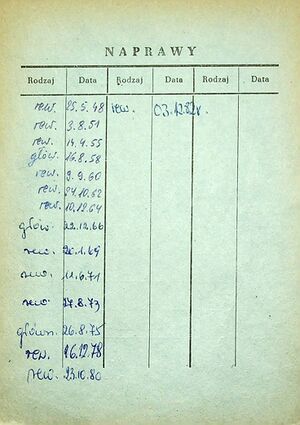 NAPRAWY
Rodzaj Data Rodzaj Data Rodzaj Data
rew. 25.5.48 rew. 03.12.82r.
rew. 3.8.51
rew. 14.4.55
głów. 16.8.58
rew. 9.9.60
rew. 24.10.62
rew. 10.12.64
głów. 22.12.66
rew. 20.1.69
rew. 11.6.71
rew. 27.8.73
główn. 26.8.75
rew. 16.12.78
rew. 23.10.80